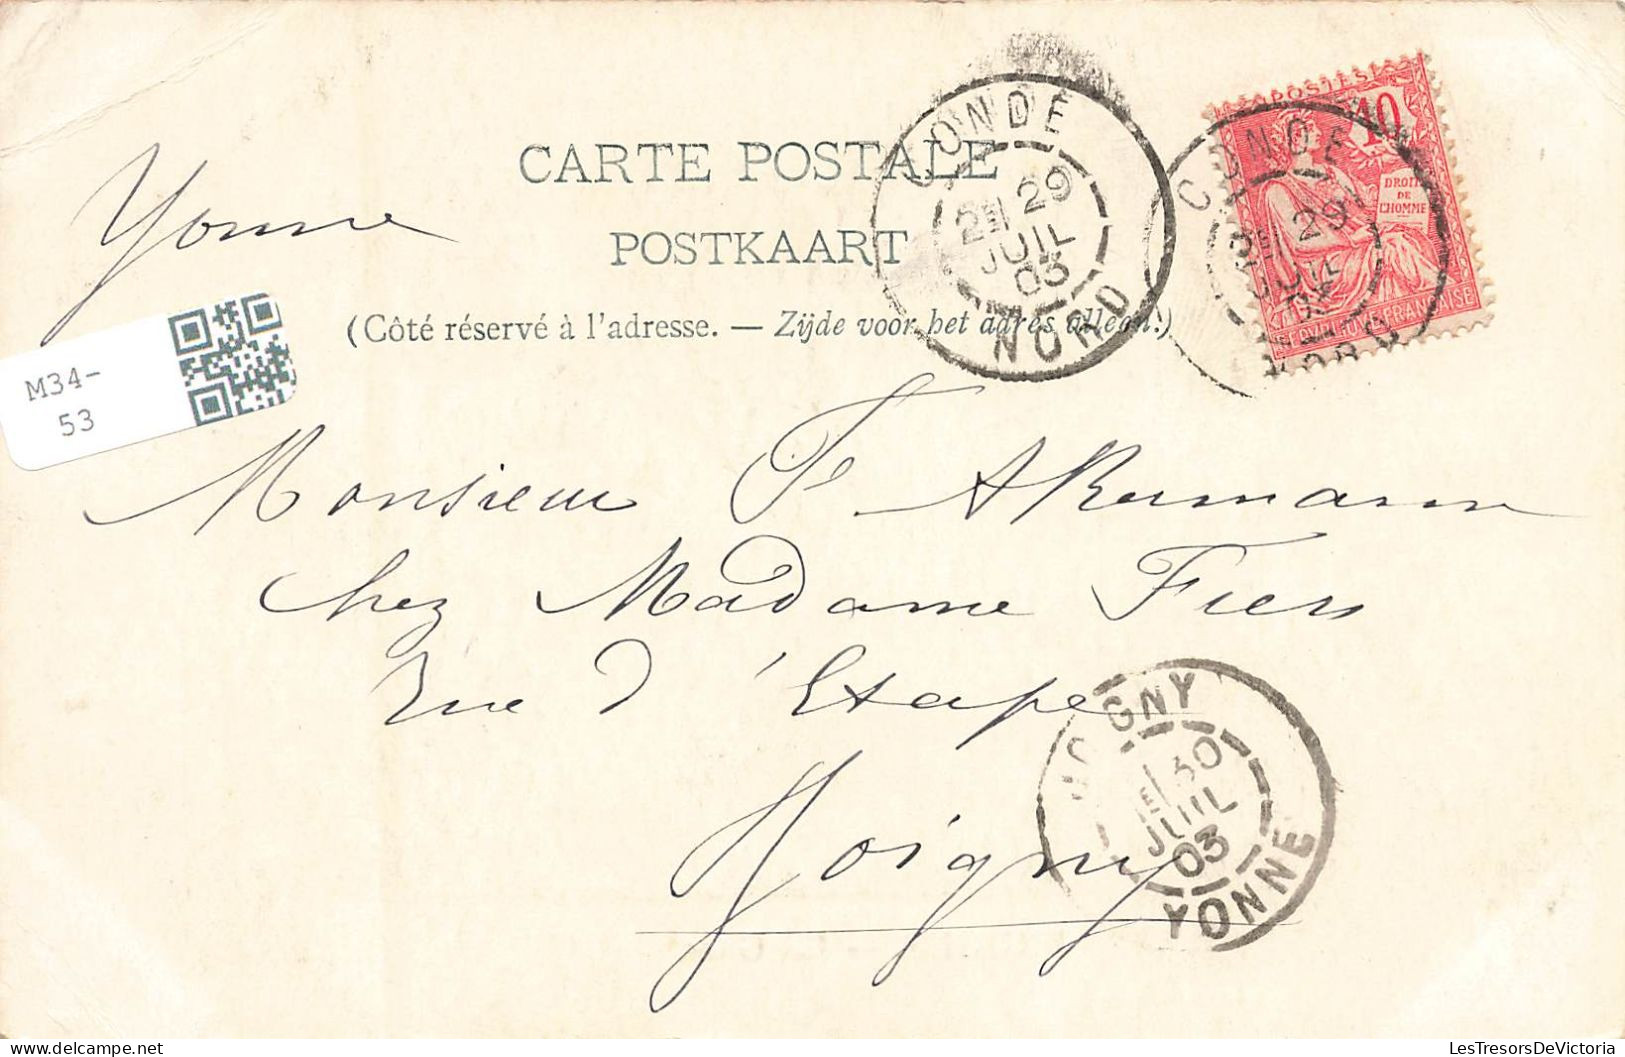 CARTE POSTALE
POSTKAART
(Côté réservé à l'adresse. — Zijde voor het adres alleen.)
Yonne
M34-
53
CONDÉ
2E 29
JUIL
03
NORD
POSTES
10
CONDÉ
29
DROITS
DE
L'HOMME
REPUBLIQUE FRANÇAISE
Monsieur Fd Akermann
chez Madame Fiers
Rue d'Etape
Joigny
JOIGNY
30
JUIL
03
YONNE
LesTresorsDeVictoria